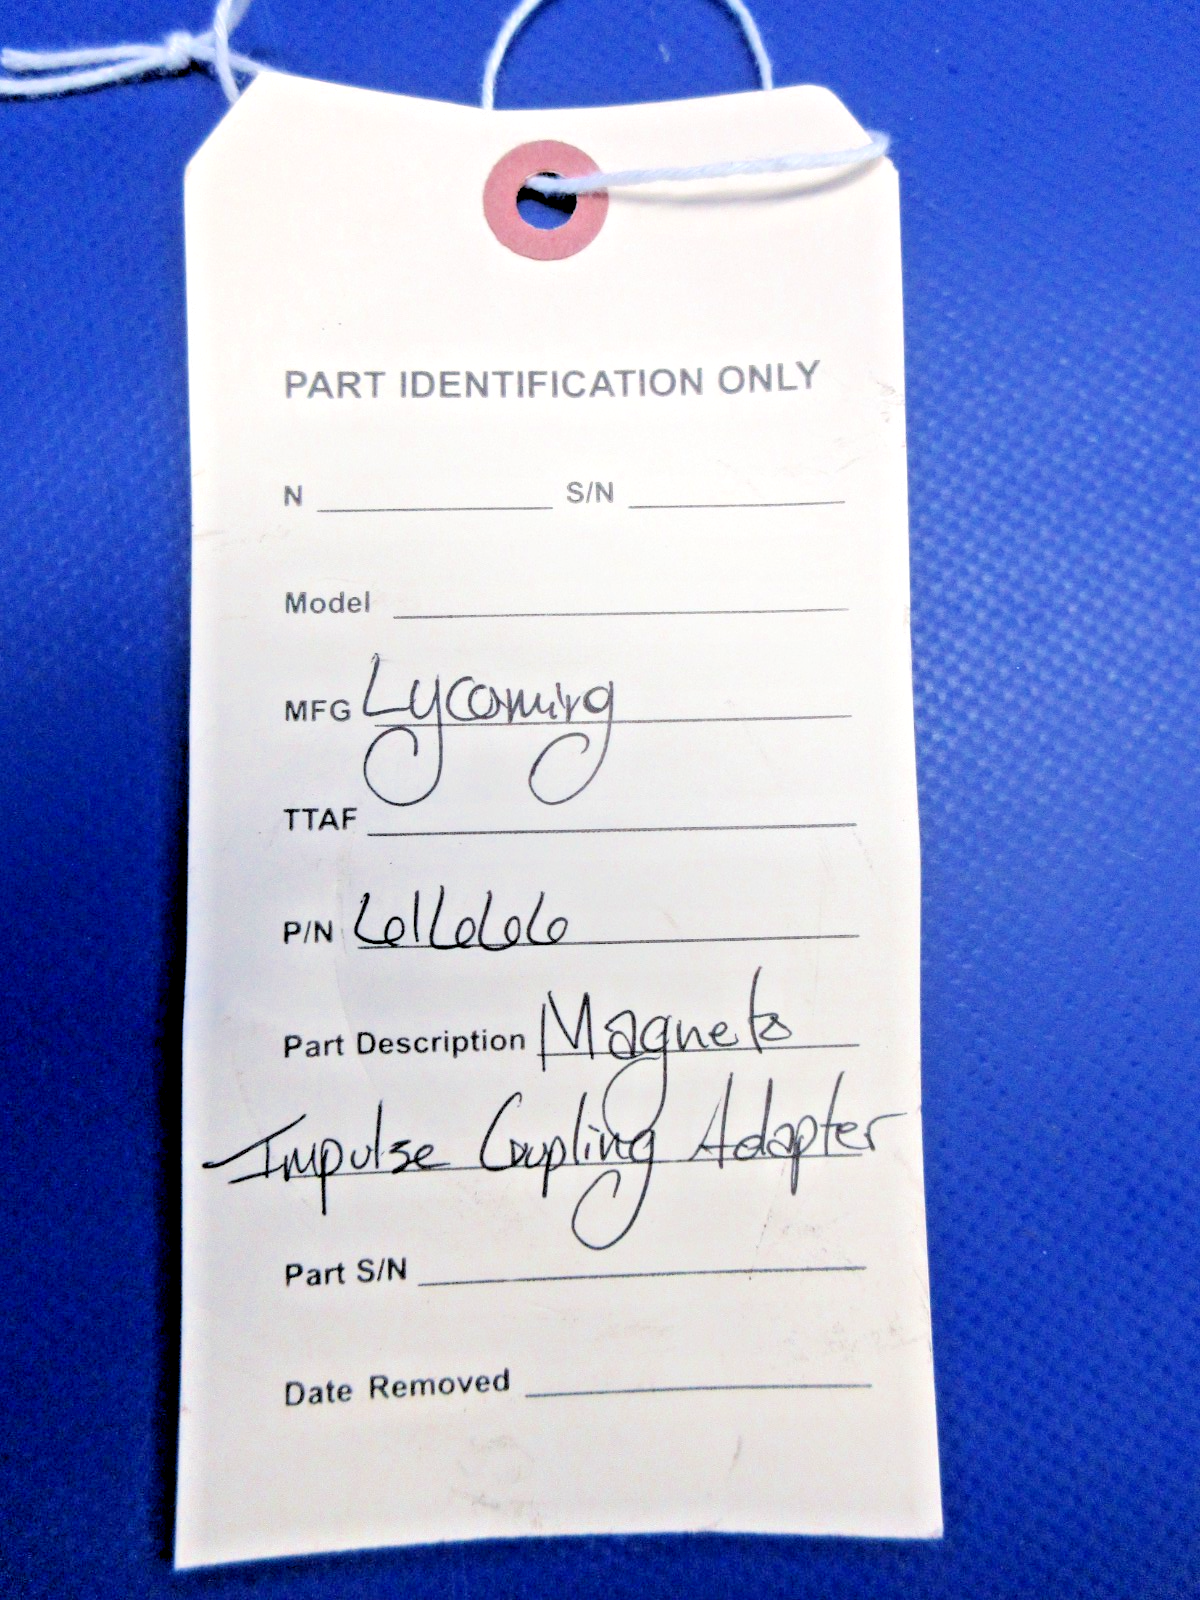 PART IDENTIFICATION ONLY
N S/N
Model
MFG Lycoming
TTAF
P/N 61666
Part Description Magneto
Impulse Coupling Adapter
Part S/N
Date Removed